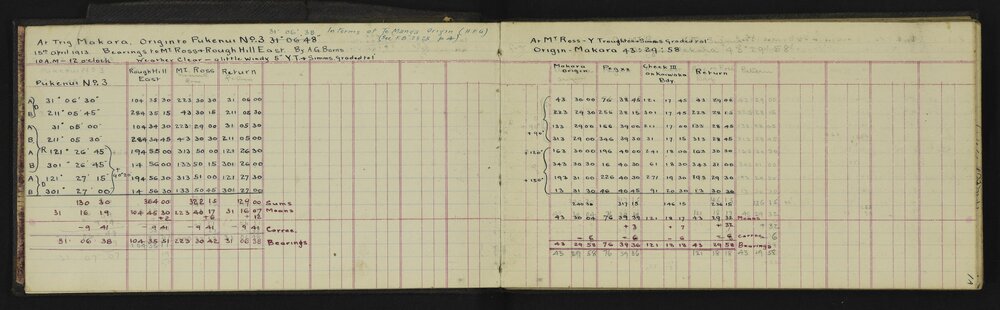 31° 06' 38 In terms of Te Manga Origin (H.E.G)
At Trig Makara, Origin to Pukenui No.3 31° 06' 48"
(See F.B. p 4)
15th April 1913 Bearings to Mt Ross + Rough Hill East By A G Borns
10 A.M - 12 o'clock Weather Clear - a little Windy 5" Y.T. & Simms Graded rol
Pukenui No.3 Rough Hill East Mt. Ross Return
A) D 31° 06' 30" 104 35 30 223 30 30 31 06 00
B) 211° 05' 45" 284 35 15 43 30 15 211 05 30
A) 31° 05' 00" 104 34 30 223 29 00 31 05 30
B) 211° 05' 30 284 34 45 43 30 30 211 05 00
A) R 121° 26' 45" 194 55 00 313 50 00 121 26 30
B) 301° 26' 45" 14 56 00 133 50 15 301 26 00
A) D 121° 27' 15" 194 56 00 313 51 00 121 27 30
B) 301° 27' 00" 14 56 30 133 50 45 301 27 00
130 30 364 00 322 15 129 00 Sums
31 16 19 104 45 30 223 40 17 31 16 07 Means
+2 +6 +12
-9 41 -9 41 -9 41 -9 41 Correc.
31 06 38 104 35 51 223 30 42 31 06 38 Bearings
At Mt Ross - Y. Troughton Simms Graded rol
Origin - Makara 43° 29' 58
Makara Origin Peg xx Check III Oakaiwaka Bdy. Return
43 30 00 76 38 45 121 17 45 43 29 00
223 29 30 256 38 15 301 17 45 223 28 15
+90° 133 29 00 166 39 00 211 17 00 133 28 45
313 29 00 346 39 30 31 17 15 313 28 45
+120° 163 30 00 196 40 00 241 18 00 163 30 00
343 30 30 16 40 30 61 18 30 343 31 00
+150° 193 31 00 226 40 30 271 19 30 193 29 30
13 31 30 46 40 45 91 20 30 13 30 30
240 30 317 15 146 15 235 15
43 30 04 76 39 39 121 18 17 43 29 32 Means
+3 +7 +32
-6 -6 -6 -6 Correc.
43 29 58 76 39 36 121 18 18 43 29 58 Bearings
43 29 58 76 39 36 121 18 18 43 29 58